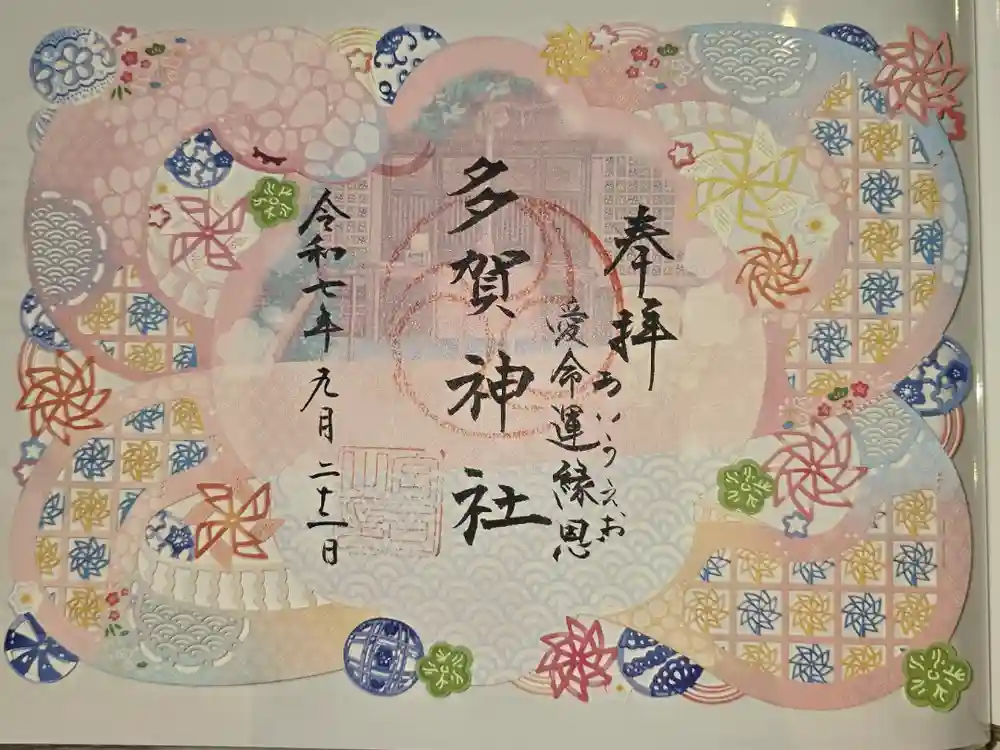 奉拝
あいうえお
愛命運縁恩
多賀神社
令和七年九月二十一日